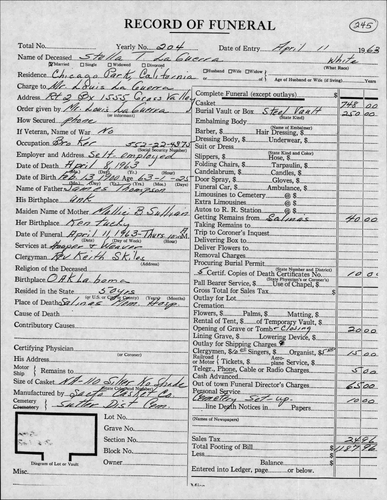 RECORD OF FUNERAL
245
Total No. Yearly No. 204 Date of Entry April 11 1963
Name of Deceased Stella T La Guerra White
Married Single Widowed Divorced (What Race)
Residence Chicago Park, California Husband Wife Widow of Age of Husband or Wife (if living) Years
Charge to Mr Louis La Guerra
Address Rt 2 Bx 1555 Grass Valley
Order given by Mr Louis La Guerra
(or informant)
How Secured phone
If Veteran, Name of War No
Occupation 552-22-4375
(Social Security Number)
Employer and Address Self employed
Date of Death April 8, 1963
Date of Birth Feb 13, 1900 Age 63-1-25
Name of Father James Thompson
His Birthplace unk
Maiden Name of Mother Mallie B Sullivan
Her Birthplace Kentucky
Date of Funeral April 11, 1963 Thurs
Services at Hooper & Weaver
Clergyman Rev Keith Skiles
Religion of the Deceased
Birthplace Oklahoma
Resided in the State 50 yrs
Place of Death Salinas Mem. Hosp.
Cause of Death
Contributory Causes
Certifying Physician
(or Coroner)
His Address
Motor
Ship Remains to
Size of Casket
Manufactured by Casket Co
Cemetery
Crematory Sutter Dist Cem
Lot No.
Grave No.
Section No.
Block No.
Owner
Diagram of Lot or Vault
Misc.
Complete Funeral (except outlays) $
Casket 748 00
Burial Vault or Box Steel Vault 250 00
(State Kind)
Embalming Body
(Name of Embalmer)
Barber, $ Hair Dressing, $
Dressing Body, $ Underwear, $
Suit or Dress
(State Kind and Color)
Slippers, $ Hose, $
Folding Chairs, $ Tarpaulin, $
Candelabrum, $ Candles, $
Door Spray, $ Gloves, $
Funeral Car, $ Ambulance, $
Limousines to Cemetery @ $
Extra Limousines @ $
Autos to R. R. Station @ $
Getting Remains from Salinas 40 00
Taking Remains to
Trip to Coroner's Inquest
Delivering Box to
Deliver Flowers to
Removal Charges
Procuring Burial Permit
(State Number and District)
5 Certif. Copies of Death Certificates No. 10 00
(State Physician's or Coroner's)
Pall Bearer Service, $ Use of Chapel, $
Gross Total for Sales Tax $
Outlay for Lot
Cremation
Flowers, $ Palms, $ Matting, $
Rental of Tent, $ of Temporary Vault, $
Opening of Grave or Tomb & closing 20 00
Lining Grave, $ Lowering Device, $
Outlay for Shipping Charges
Clergymen, $ Singers, $ Organist, $ 15 00
Telegr., Phone, Cable or Radio Charges 5 00
Cash Advanced
Out of town Funeral Director's Charges 65 00
Personal Service
Cemetery Set-up. 10 00
line Death Notices in Papers
(Names of Newspapers)
Sales Tax
Total Footing of Bill $
Less
Balance $
Entered into Ledger, page or below.